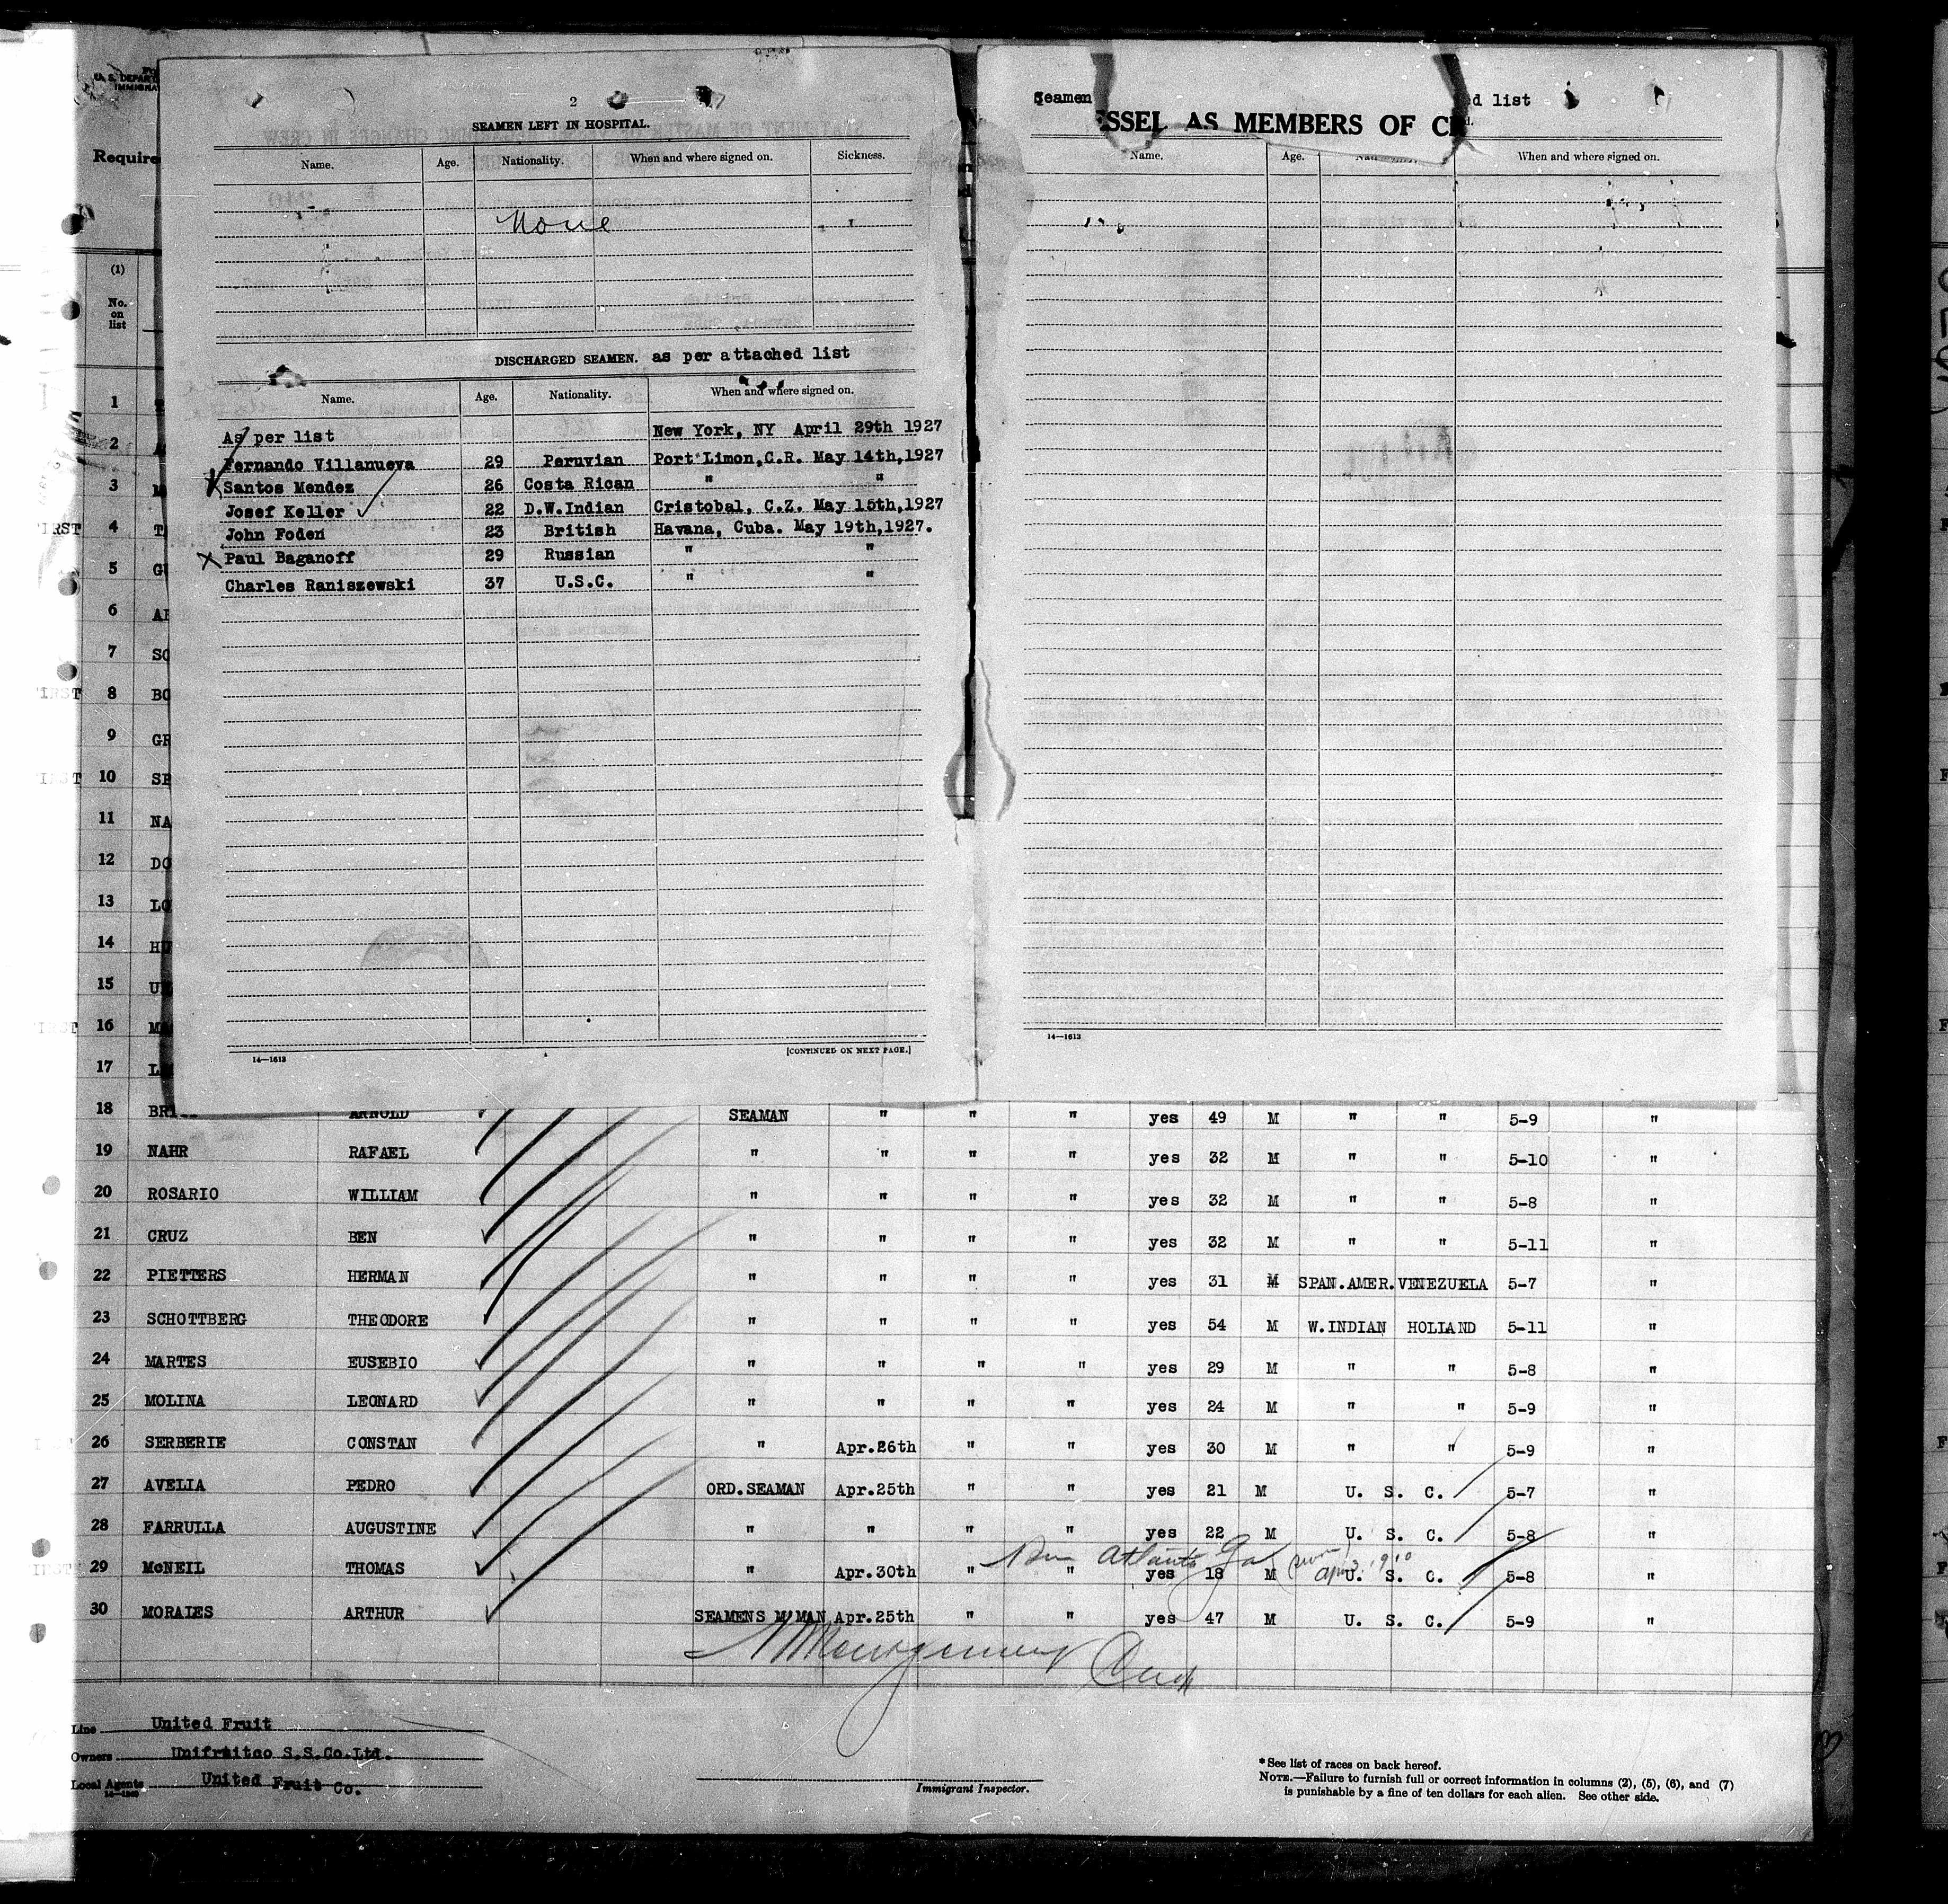 2
SEAMEN LEFT IN HOSPITAL.
Name. Age. Nationality. When and where signed on. Sickness.
None
DISCHARGED SEAMEN. as per attached list
Name. Age. Nationality. When and where signed on.
As per list New York, NY April 29th 1927
Fernando Villanueva 29 Peruvian Port Limon,C.R. May 14th,1927
Santos Mendez 26 Costa Rican " "
Josef Keller 22 D.W.Indian Cristobal, C.Z. May 15th,1927
John Foden 23 British Havana, Cuba. May 19th,1927.
X Paul Baganoff 29 Russian " "
Charles Raniszewski 37 U.S.C. " "
14—1613 [CONTINUED ON NEXT PAGE.]
Seamen ed list
SSEL AS MEMBERS OF CR
Name. Age. When and where signed on.
14—1613
U. S. DEPAR
IMMIGRA
Require
(1)
No.
on
list
1
2
3
IRST 4
5 GU
6
7 SO
IRST 8 BO
9 GR
10 SE
11 NA
12 DO
13 LO
14
15
16
17
18 ARNOLD SEAMAN " " " yes 49 M " " 5-9 "
19 NAHR RAFAEL " " " " yes 32 M " " 5-10 "
20 ROSARIO WILLIAM " " " " yes 32 M " " 5-8 "
21 CRUZ BEN " " " " yes 32 M " " 5-11 "
22 PIETTERS HERMAN " " " " yes 31 M SPAN.AMER. VENEZUELA 5-7 "
23 SCHOTTBERG THEODORE " " " " yes 54 M W.INDIAN HOLLAND 5-11 "
24 MARTES EUSEBIO " " " " yes 29 M " " 5-8 "
25 MOLINA LEONARD " " " " yes 24 M " " 5-9 "
26 SERBERIE CONSTAN " Apr.26th " " yes 30 M " " 5-9 "
27 AVELIA PEDRO ORD.SEAMAN Apr.25th " " yes 21 M U. S. C. 5-7 "
28 FARRULLA AUGUSTINE " " " " yes 22 M U. S. C. 5-8 "
Atlanta Ga
29 McNEIL THOMAS " Apr.30th " " yes 18 M U. S. C. 5-8 "
30 MORALES ARTHUR SEAMENS M'MAN Apr.25th " " yes 47 M U. S. C. 5-9 "
Line United Fruit
Owners Unifruitco S.S.Co.Ltd.
Local Agents United Fruit Co.
Immigrant Inspector.
*See list of races on back hereof.
NOTE.—Failure to furnish full or correct information in columns (2), (5), (6), and (7)
is punishable by a fine of ten dollars for each alien. See other side.